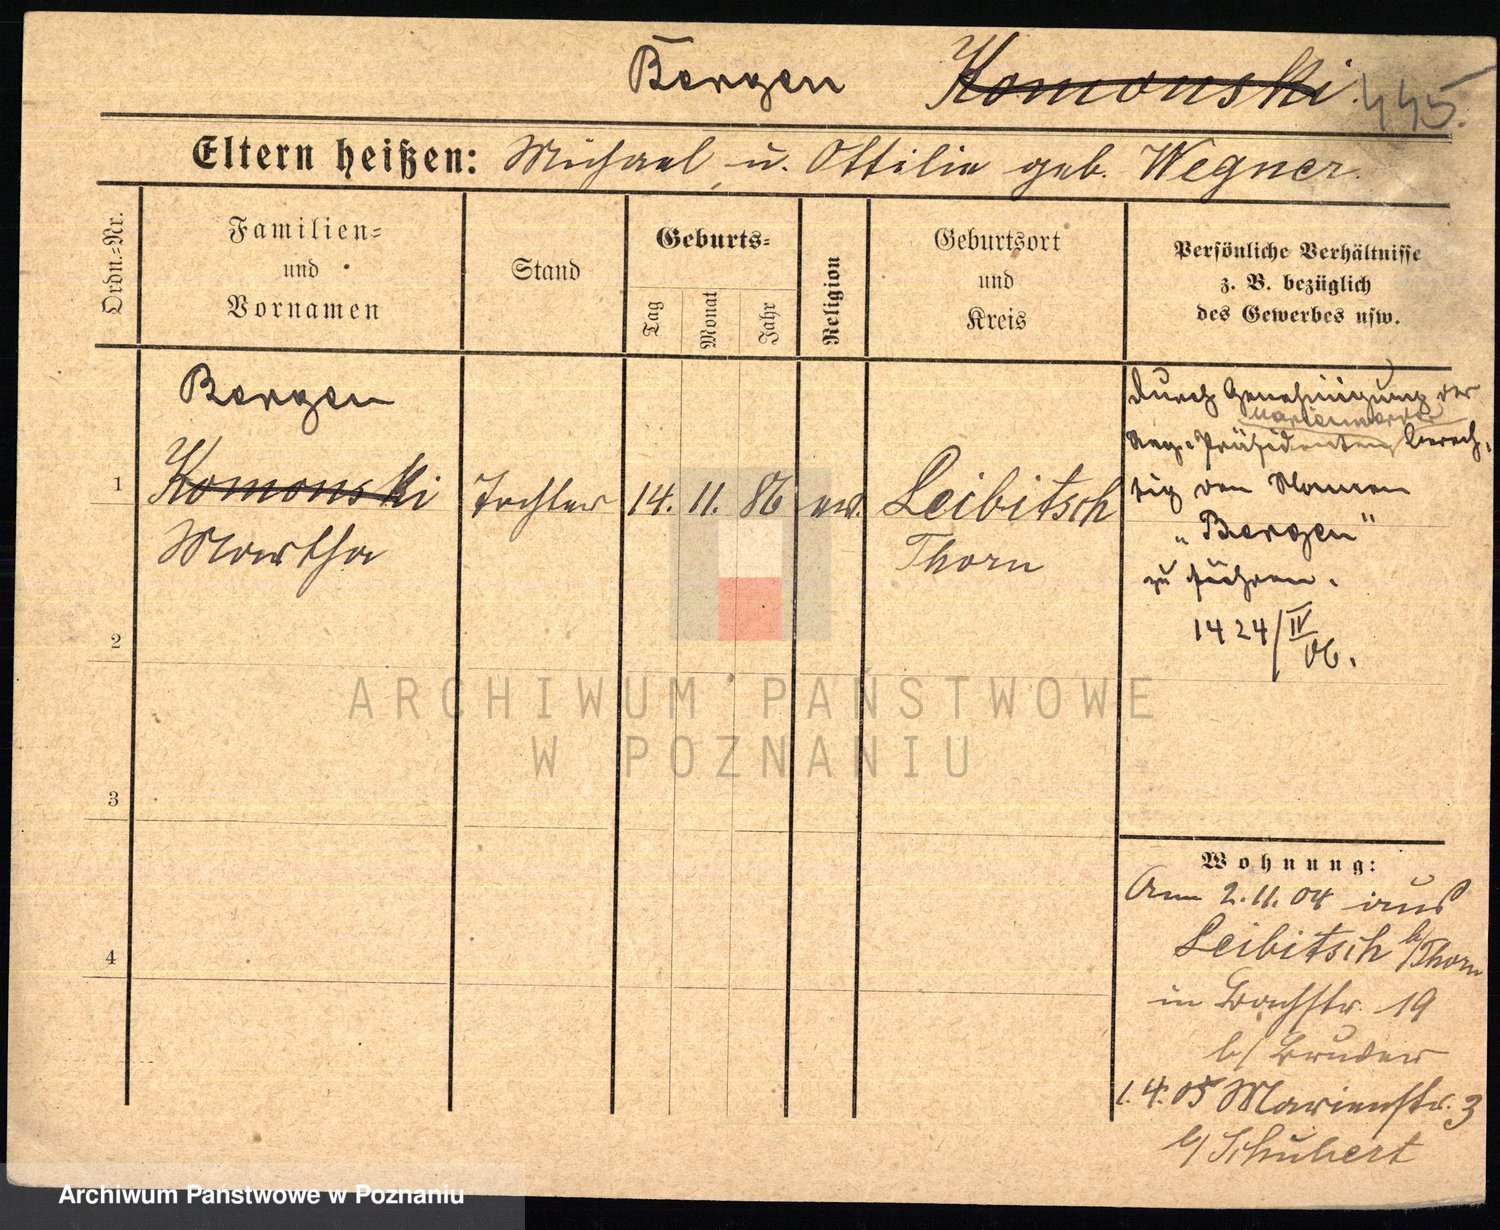 Bergen Komonski 445.
Eltern heißen: Michael u. Ottilie geb. Wegner.
Ordn.=Nr.
Familien=
und
Vornamen
Stand
Geburts=
Tag
Monat
Jahr
Religion
Geburtsort
und
Kreis
Persönliche Verhältnisse
z. B. bezüglich
des Gewerbes usw.
1
Bergen
Komonski
Martha
Tochter
14. 11. 86
ev.
Leibitsch
Thorn
durch Genehmigung der
Marienwerder
Reg.-Präsidenten berech-
tig den Namen
„Bergen"
zu führen.
1424/IV
06.
2
3
4
Wohnung:
Am 2.11.04 aus
Leibitsch b/Thorn
in Bachstr. 19
b/ Bruder
1.4.05 Marienstr. 3
b/ Schubert
ARCHIWUM PAŃSTWOWE
W POZNANIU
Archiwum Państwowe w Poznaniu